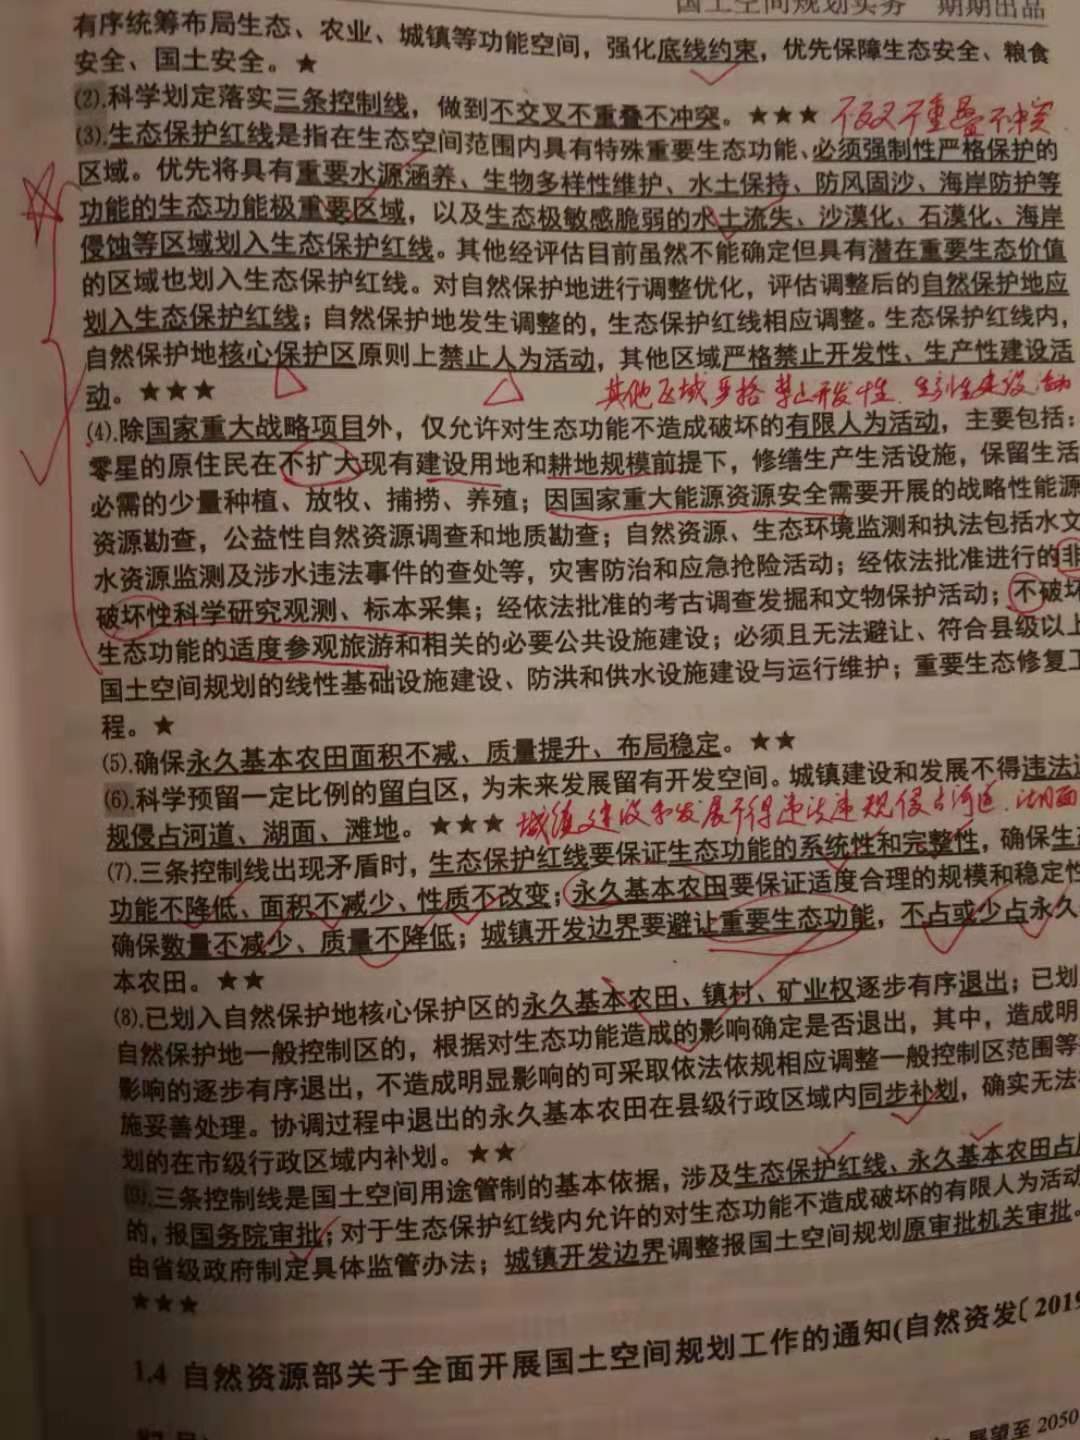 国土空间规划实务 期期出品
有序统筹布局生态、农业、城镇等功能空间，强化底线约束，优先保障生态安全、粮食
安全、国土安全。★
⑵.科学划定落实三条控制线，做到不交叉不重叠不冲突。★★★ 不交叉不重叠不冲突
⑶.生态保护红线是指在生态空间范围内具有特殊重要生态功能、必须强制性严格保护的
区域。优先将具有重要水源涵养、生物多样性维护、水土保持、防风固沙、海岸防护等
功能的生态功能极重要区域，以及生态极敏感脆弱的水土流失、沙漠化、石漠化、海岸
侵蚀等区域划入生态保护红线。其他经评估目前虽然不能确定但具有潜在重要生态价值
的区域也划入生态保护红线。对自然保护地进行调整优化，评估调整后的自然保护地应
划入生态保护红线；自然保护地发生调整的，生态保护红线相应调整。生态保护红线内，
自然保护地核心保护区原则上禁止人为活动，其他区域严格禁止开发性、生产性建设活
动。★★★ 其他区域严格禁止开发性、生产性建设活动
⑷.除国家重大战略项目外，仅允许对生态功能不造成破坏的有限人为活动，主要包括：
零星的原住民在不扩大现有建设用地和耕地规模前提下，修缮生产生活设施，保留生活
必需的少量种植、放牧、捕捞、养殖；因国家重大能源资源安全需要开展的战略性能源
资源勘查，公益性自然资源调查和地质勘查；自然资源、生态环境监测和执法包括水文
水资源监测及涉水违法事件的查处等，灾害防治和应急抢险活动；经依法批准进行的非
破坏性科学研究观测、标本采集；经依法批准的考古调查发掘和文物保护活动；不破坏
生态功能的适度参观旅游和相关的必要公共设施建设；必须且无法避让、符合县级以上
国土空间规划的线性基础设施建设、防洪和供水设施建设与运行维护；重要生态修复工
程。★
⑸.确保永久基本农田面积不减、质量提升、布局稳定。★★
⑹.科学预留一定比例的留白区，为未来发展留有开发空间。城镇建设和发展不得违法违
规侵占河道、湖面、滩地。★★★ 城镇建设和发展不得违法违规侵占河道、湖面
⑺.三条控制线出现矛盾时，生态保护红线要保证生态功能的系统性和完整性，确保生态
功能不降低、面积不减少、性质不改变；永久基本农田要保证适度合理的规模和稳定性
确保数量不减少、质量不降低；城镇开发边界要避让重要生态功能，不占或少占永久
本农田。★★
⑻.已划入自然保护地核心保护区的永久基本农田、镇村、矿业权逐步有序退出；已划
自然保护地一般控制区的，根据对生态功能造成的影响确定是否退出，其中，造成明
影响的逐步有序退出，不造成明显影响的可采取依法依规相应调整一般控制区范围等
施妥善处理。协调过程中退出的永久基本农田在县级行政区域内同步补划，确实无法
划的在市级行政区域内补划。★★
⑼.三条控制线是国土空间用途管制的基本依据，涉及生态保护红线、永久基本农田占
的，报国务院审批；对于生态保护红线内允许的对生态功能不造成破坏的有限人为活动
由省级政府制定具体监管办法；城镇开发边界调整报国土空间规划原审批机关审批。
★★★
1.4 自然资源部关于全面开展国土空间规划工作的通知(自然资发〔2019
展望至 2050